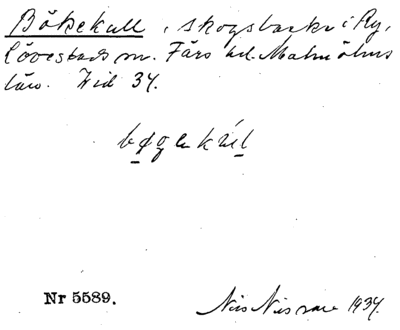 Bökekull, skogsbacke i Ry,
Lövestads sn. Färs hd. Malmöhus
län. Wid 34.
bøgekul
Nr 5589.
Nils Nilsson 1934.